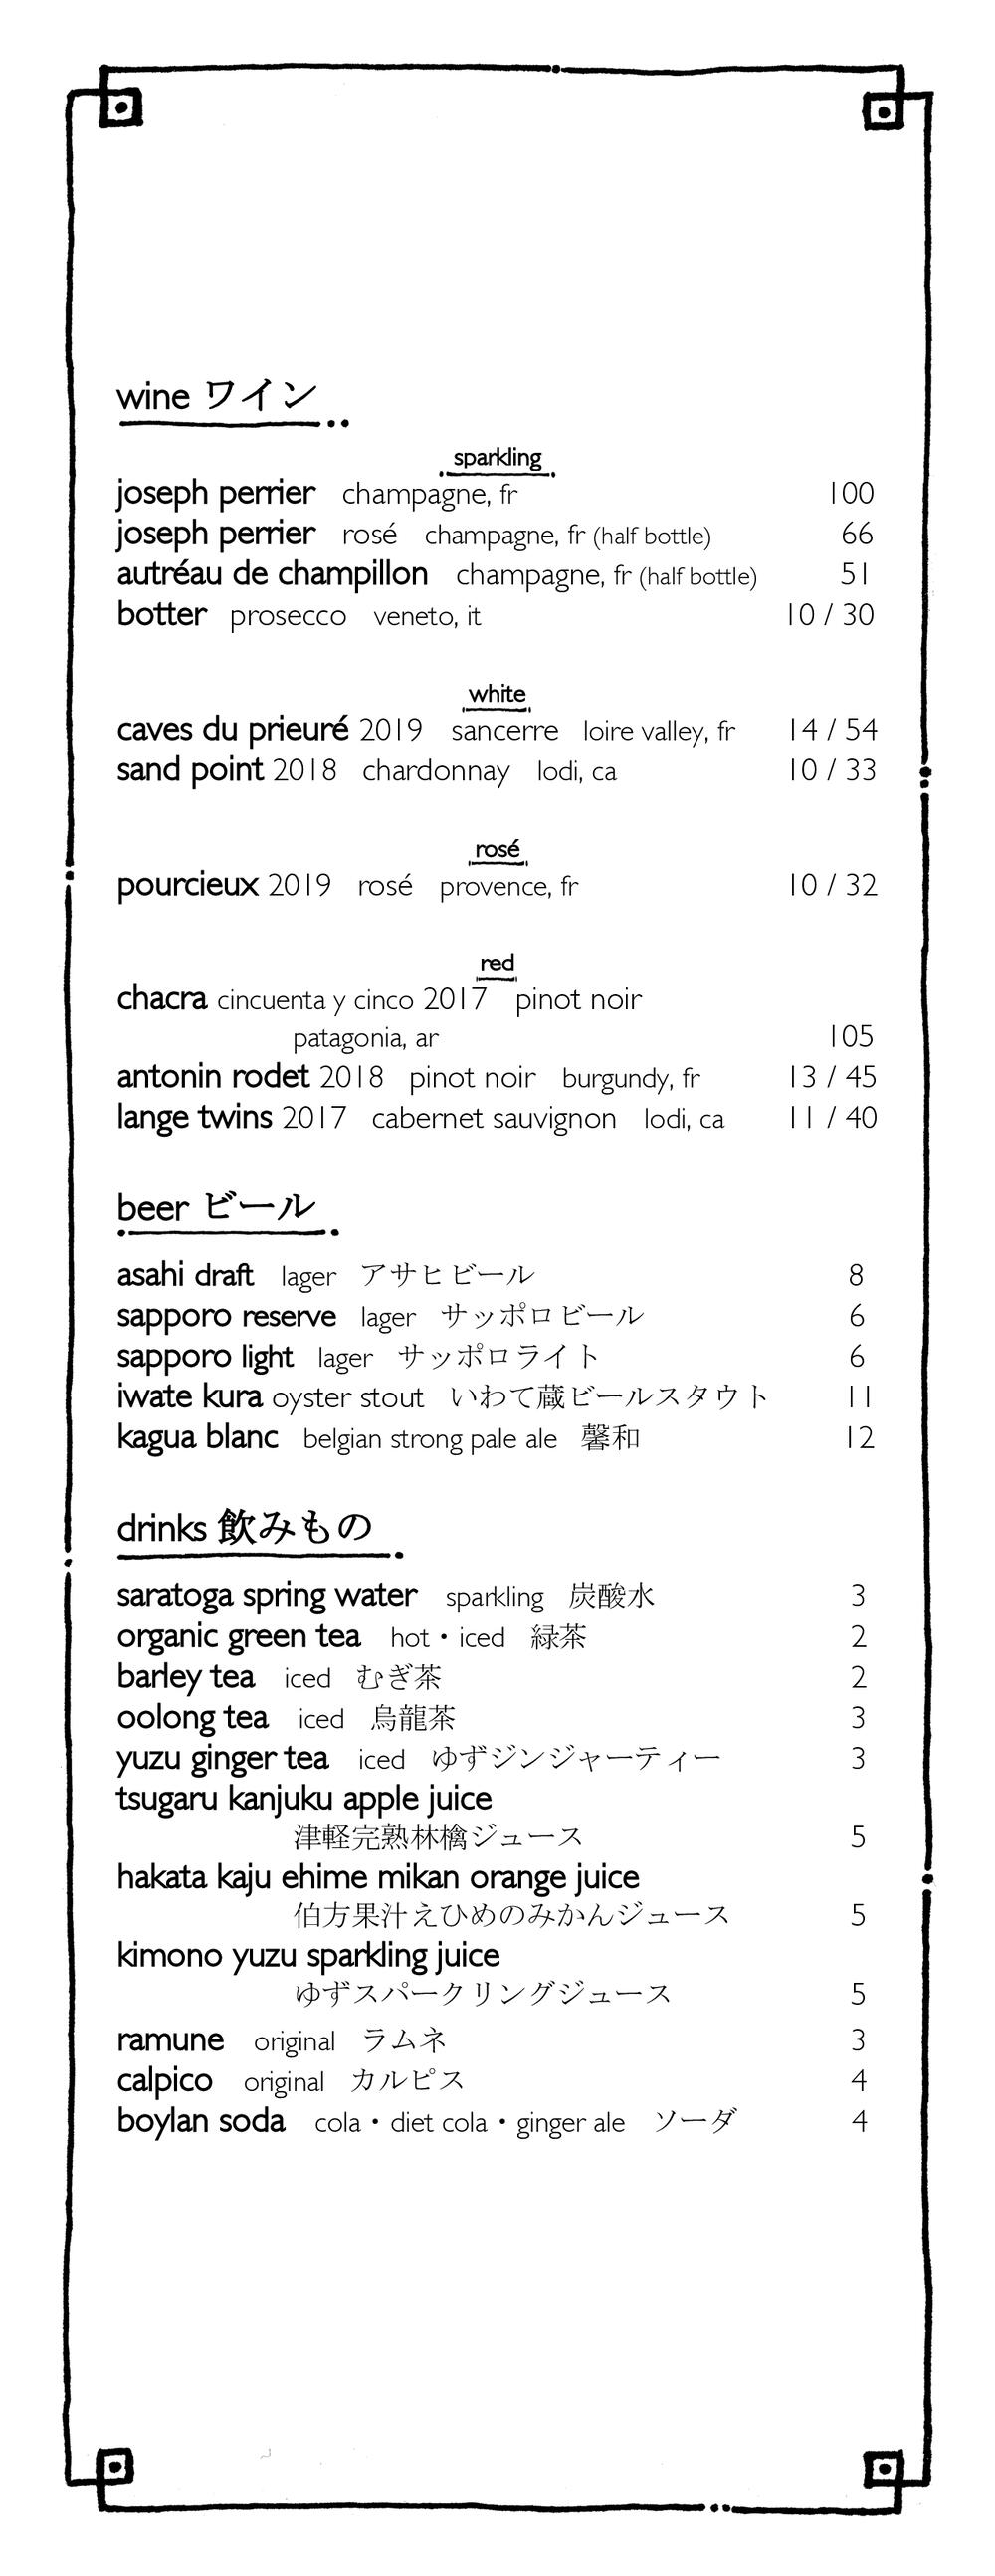 wine ワイン
sparkling
joseph perrier champagne, fr 100
joseph perrier rosé champagne, fr (half bottle) 66
autréau de champillon champagne, fr (half bottle) 51
botter prosecco veneto, it 10 / 30
white
caves du prieuré 2019 sancerre loire valley, fr 14 / 54
sand point 2018 chardonnay lodi, ca 10 / 33
rosé
pourcieux 2019 rosé provence, fr 10 / 32
red
chacra cincuenta y cinco 2017 pinot noir
patagonia, ar 105
antonin rodet 2018 pinot noir burgundy, fr 13 / 45
lange twins 2017 cabernet sauvignon lodi, ca 11 / 40
beer ビール
asahi draft lager アサヒビール 8
sapporo reserve lager サッポロビール 6
sapporo light lager サッポロライト 6
iwate kura oyster stout いわて蔵ビールスタウト 11
kagua blanc belgian strong pale ale 馨和 12
drinks 飲みもの
saratoga spring water sparkling 炭酸水 3
organic green tea hot・iced 緑茶 2
barley tea iced むぎ茶 2
oolong tea iced 烏龍茶 3
yuzu ginger tea iced ゆずジンジャーティー 3
tsugaru kanjuku apple juice
津軽完熟林檎ジュース 5
hakata kaju ehime mikan orange juice
伯方果汁えひめのみかんジュース 5
kimono yuzu sparkling juice
ゆずスパークリングジュース 5
ramune original ラムネ 3
calpico original カルピス 4
boylan soda cola・diet cola・ginger ale ソーダ 4